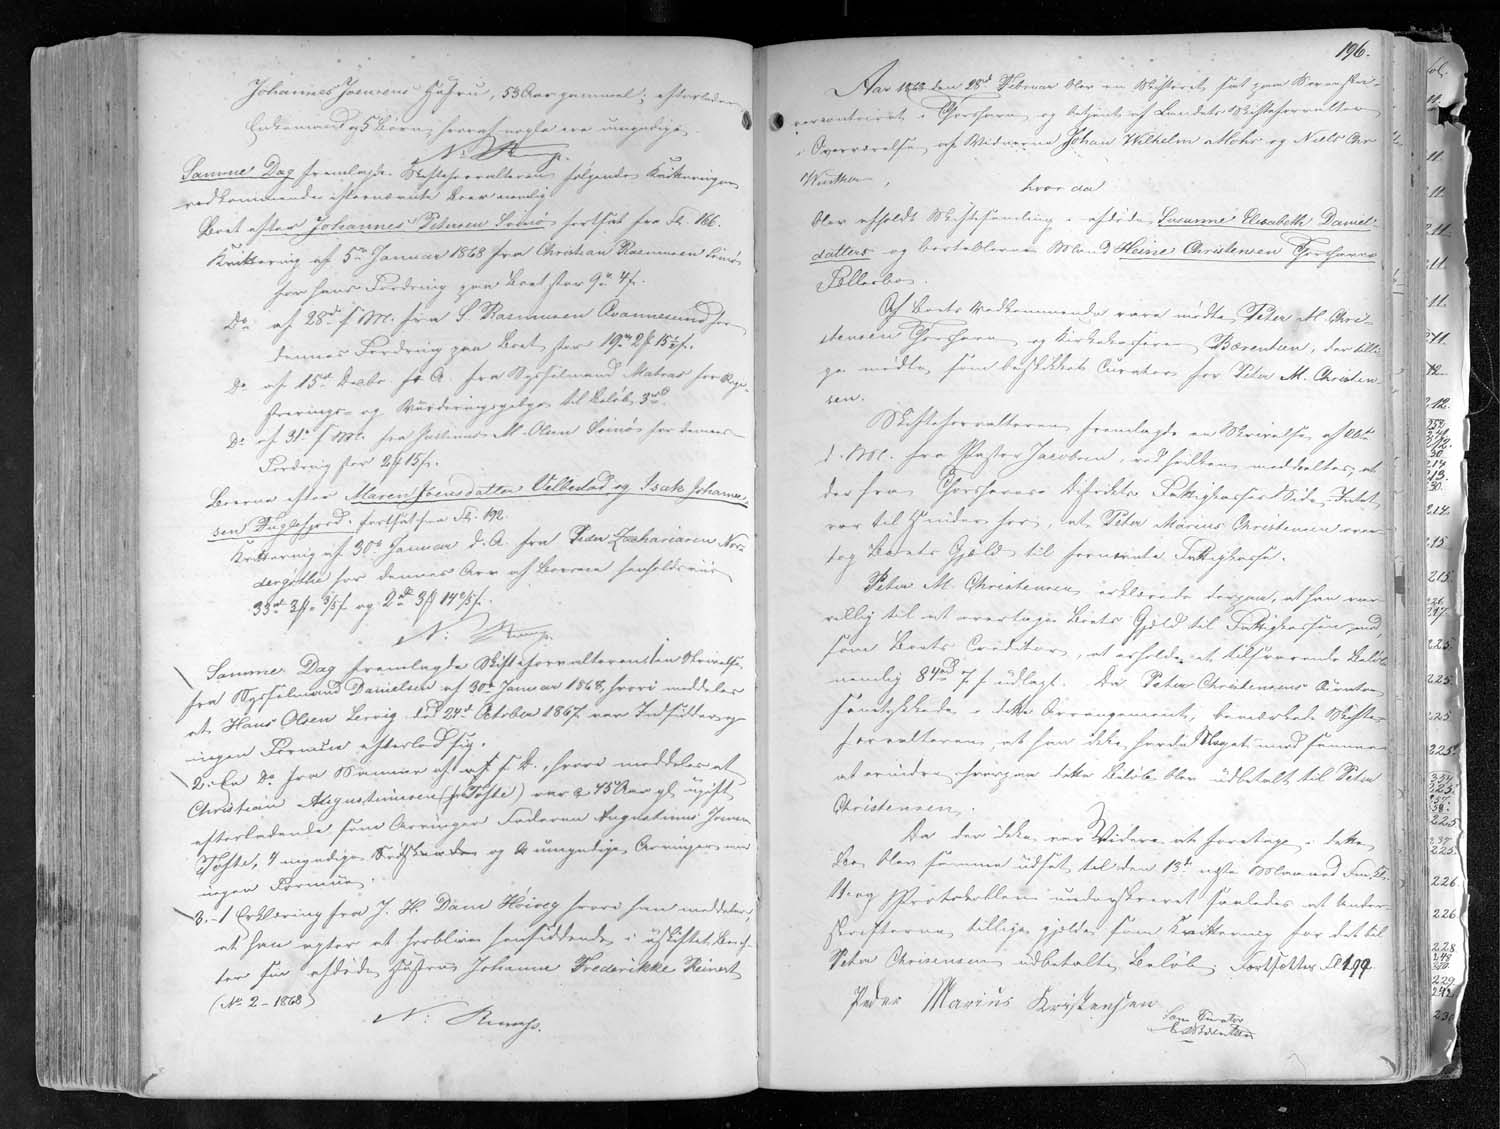 Johannes Joensens Hustru, 53 Aar gammel; efterlader
Enkemand og 5 Børn, hvoraf nogle ere umyndige.
N:
Samme Dag fremlagde Skifteforvalteren følgende Kvitteringer
vedkommende efternævnte Boer nemlig
Boet efter Johannes Petersen Svinø fortsat fra Fol. 166.
Kvittering af 5te Januar 1868 fra Christian Rasmussen Svinø
for hans Fordring paa Boet stor 9 4 f.
Do af 28d f. M. fra S. Rasmussen Qvannesund for
dennes Fordring paa Boet stor 19 2 15½ f.
Do af 15d Decbr f. A. fra Sysselmand Matras for Regi-
strerings- og Vurderingsgebyr til Beløb 3
Do af 31d f. M. fra Justinus M. Olsen Svinø for dennes
Fordring stor 2 15 f.
Boerne efter Maren Joensdatter Velbestad og Isak Johannes-
sen Fuglefjord, fortsat fra Fol. 192.
Kvittering af 30d Januar d. A. fra Peder Zachariasen Nor-
dergøthe for dennes Arv af Boerne henholdsviis
33 3 3/5 f. og 2 3 14 2/5 f.
N:
Samme Dag fremlagde Skifteforvalteren 1 en Skrivelse
fra Sysselmand Danielsen af 30d Januar 1868, hvori meddeles
at Hans Olsen Lervig død 24d October 1867 var Indsidder og
ingen Formue efterlod sig.
2. En do fra Samme af s. D. hvori meddeles at
Christian Augustinussen (fr. Tofte) var c 45 Aar gl. ugift,
efterladende som Arvinger Faderen Augustinus Joensen
Tofte, 4 myndige Sødskende og umyndige Arvinger men
ingen Formue.
3. 1 Erklæring fra J. H. Dam Høivig hvori han meddeler,
at han agter at forblive hensiddende i uskiftet Bo ef-
ter sin afdøde Hustru Johanne Frederikke Reinert
(No 2 - 1868)
N:
196.
Aar 1868 den 28d Februar blev en Skifteret, sat paa Sorenskri-
vercontoiret i Thorshavn og betjent af Landets Skifteforvalter
i Overværelse af Vidnerne Johan Wilhelm Mohr og Niels Chr
Winther,
hvor da
blev afholdt Skiftesamling i afdøde Susanne Elisabeth Daniels-
datters og bortblevne Mand Heine Christensen Thorshavns
Fællesbo.
Af Boets Vedkommende vare mødte Peter M. Chri-
stensen Thorshavn og Kirkekasserer Bærentsen, der tilli-
ge mødte som beskikket Curator for Peter M. Christen-
sen.
Skifteforvalteren fremlagde en Skrivelse af
d. M. fra Pastor Jacobsen, ved hvilken meddeeltes, at
der fra Thorshavns Districts Fattigkasses Side Intet
var til Hinder for, at Peter Marius Christensen over-
tog Boets Gjæld til fornævnte Fattigkasse.
Peter M. Christensen erklærede derpaa, at han var
villig til at overtage Boets Gjæld til Fattigkassen mod,
som Boets Creditor, at erholde et tilsvarende Beløb
nemlig 84 7 f udlagt. Da Peter Christensens Curator
samtykkede i dette Arrangement, bemærkede Skifte-
forvalteren, at han ikke havde Noget mod samme
at erindre, hvorpaa dette Beløb blev udbetalt til Peter
Christensen.
Da der ikke var Videre at foretage i dette
Bo, blev samme udsat til den 13d næste Maaned
og Protokollen underskrevet saaledes at Under-
skrifterne tillige gjælde som Kvittering for det til
Peter Christensen udbetalte Beløb. Fortsættes Fol 199
Peder Marius Kristensen
som Curator